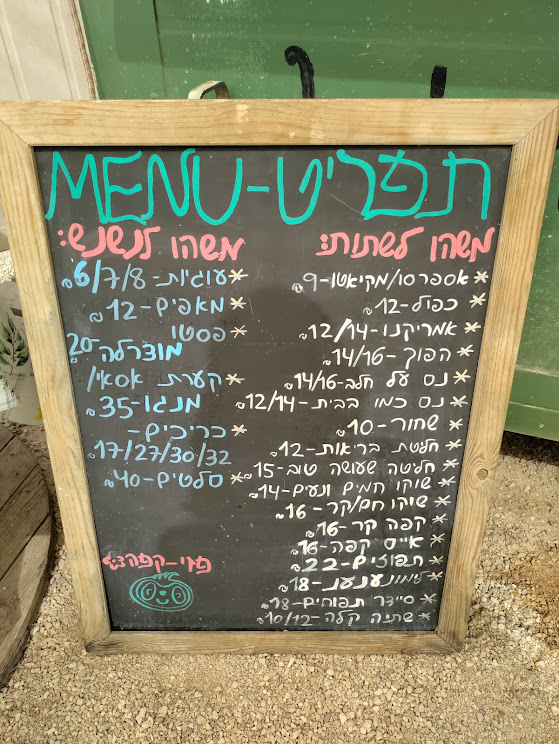 MENU-תפריט
משהו לשתות:
* אספרסו/מקיאטו-9₪
* כפול-12₪
* אמריקנו-12/14
* הפוך-14/16₪
* נס על חלב-14/16₪
* נס כמו בבית-12/14₪
* שחור-10₪
* חליטת בריאות-12
* חליטה שעושה טוב-15₪
* שוקו חמים ונעים-14₪
* שוקו חם/קר-16₪
* קפה קר-16₪
* אייס קפה-16₪
* תפוזים-22₪
* לימונענע-18₪
* סיידר תפוחים-18₪
* שתיה קלה-10/12₪
משהו לנשנש:
* עוגיות-6/7/8₪
* מאפים-12₪
* פסטו
מוצרלה-20₪
* קערת אסאי/
מנגו-35₪
* כריכים-
17/27/30/32
* סלטים-40₪